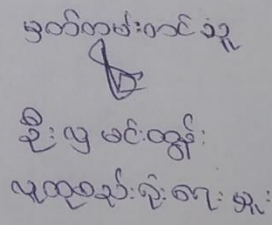 မှတ်တမ်းတင်သူ
ဦးလှမင်းထွန်း
လူထုစည်းရုံးရေးမှူး